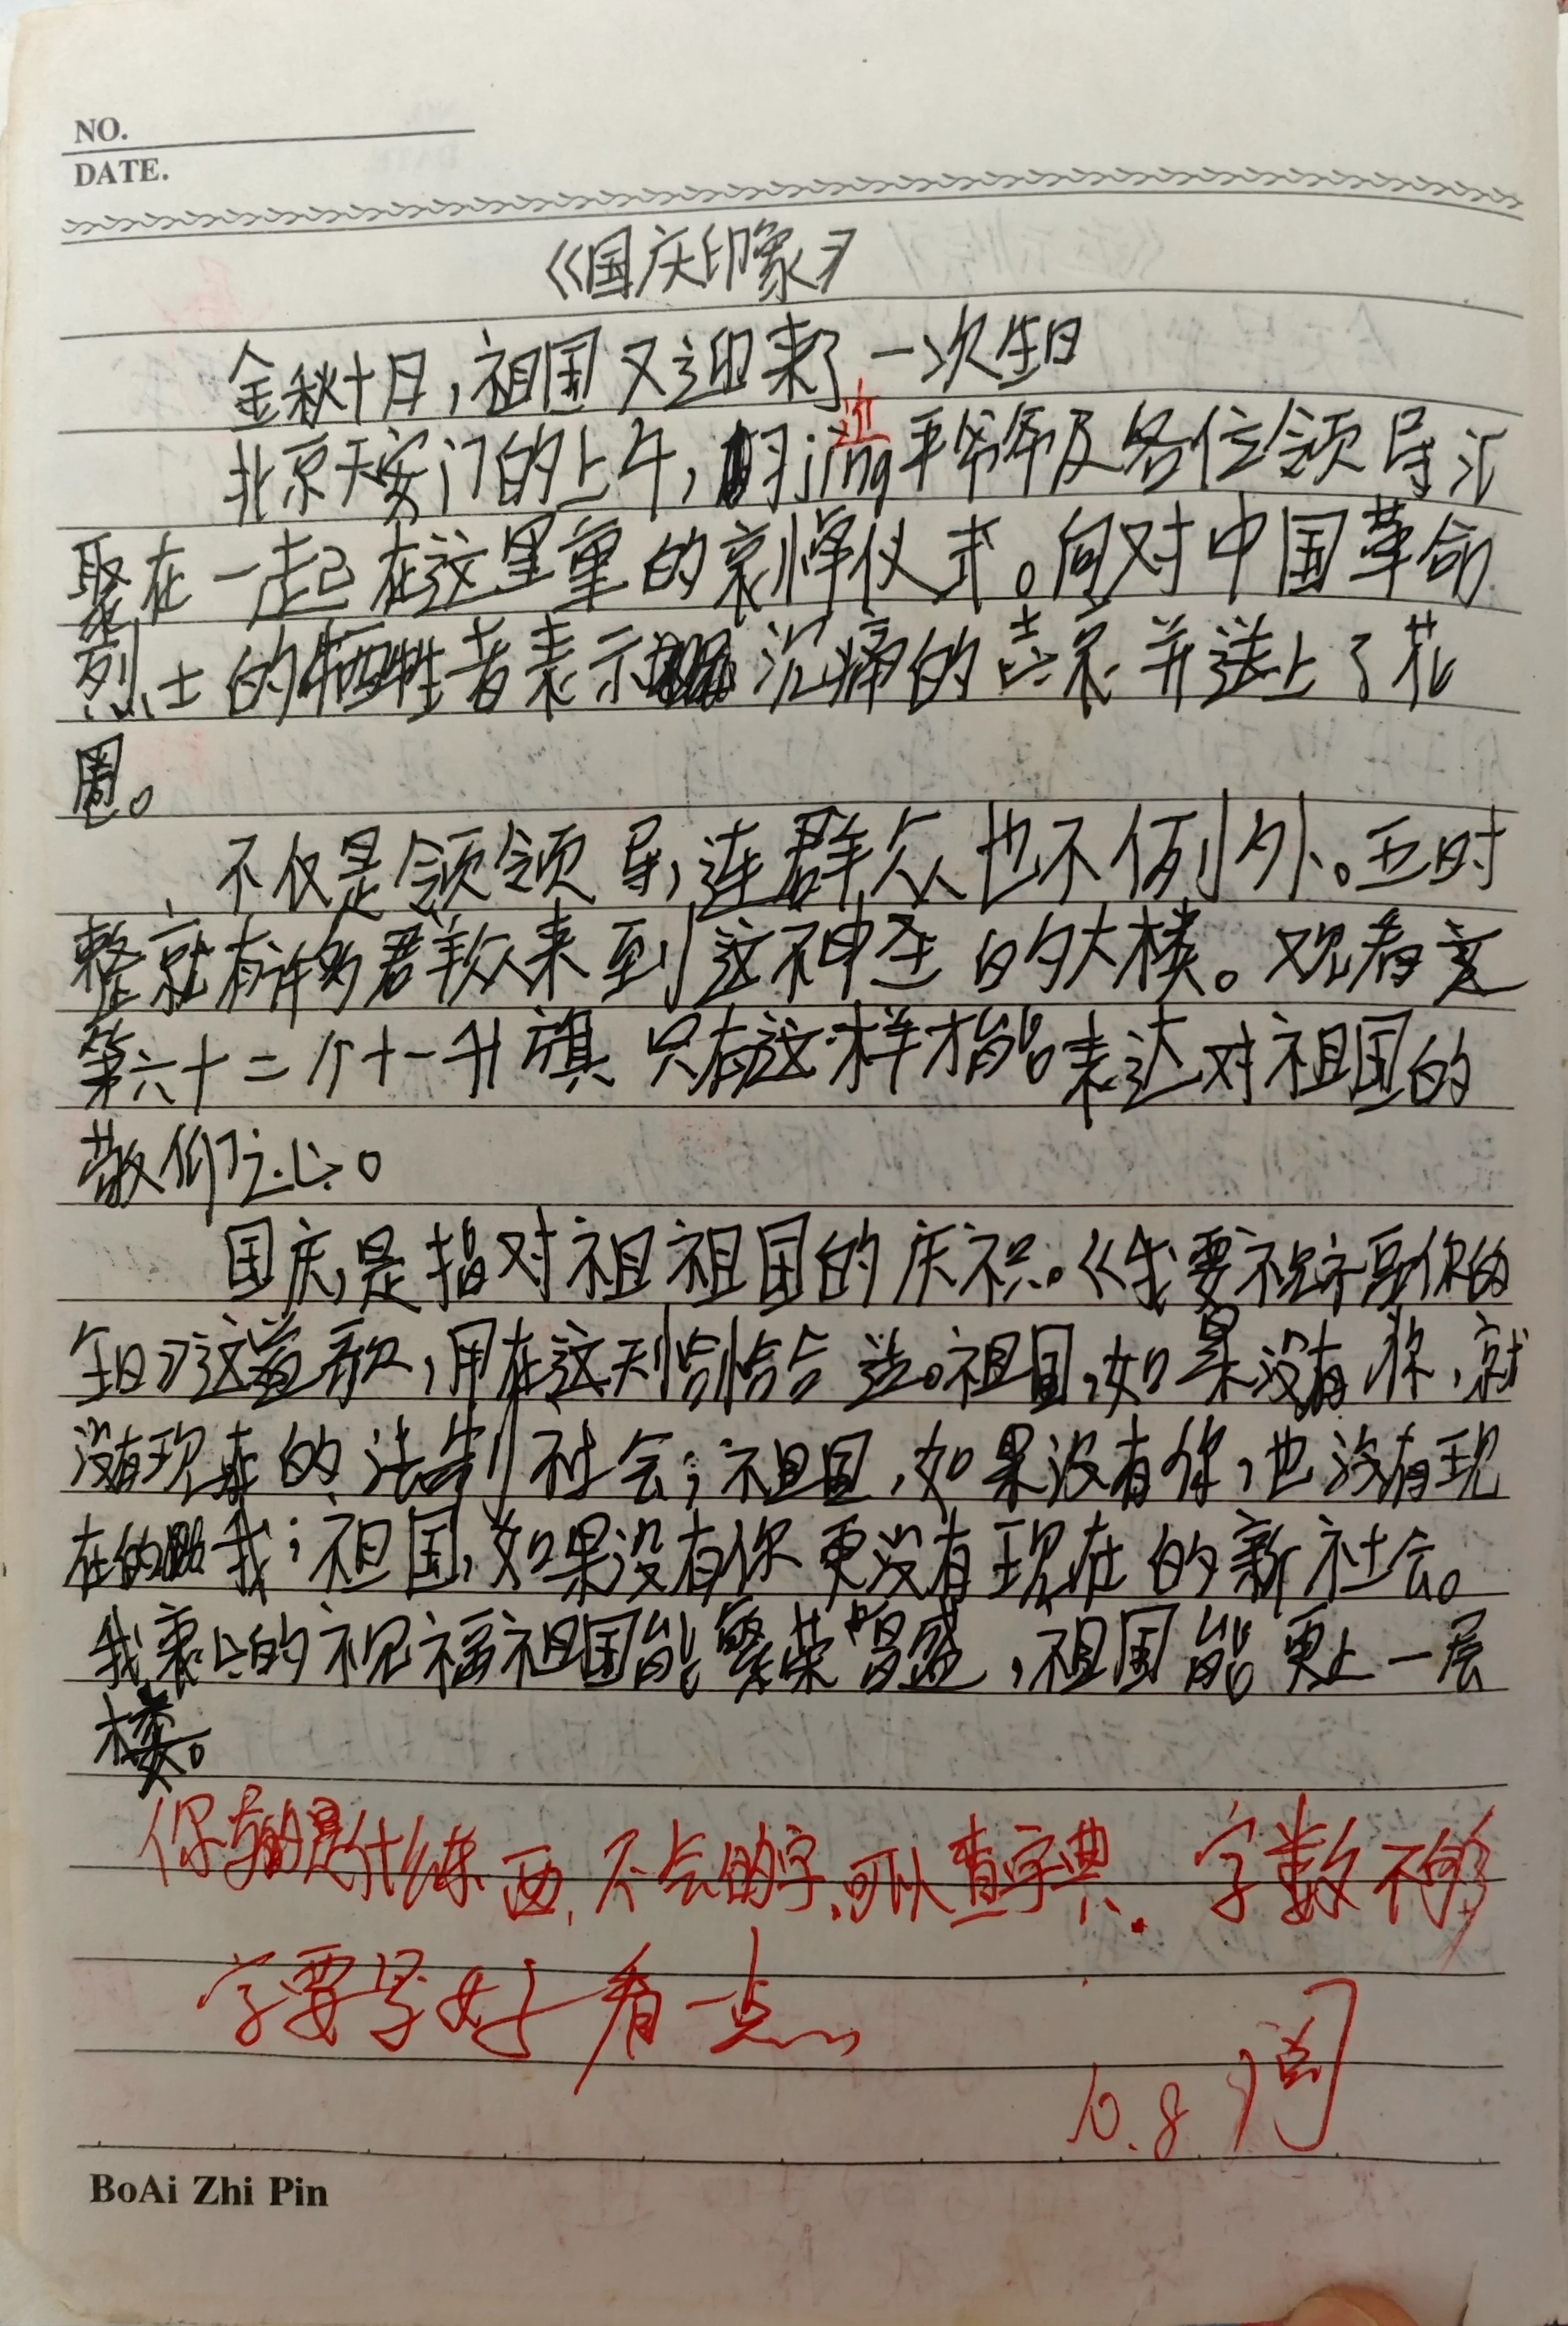 NO.
DATE.
《国庆印象》
金秋十月，祖国又迎来了一次生日
近
北京天安门的上午，习jing平爷爷及各位领导汇
聚在一起在这里重的哀悼仪式。向对中国革命
烈士的牺牲者表示沉痛的哀并送上了花
圈。
不仅是领领导，连群众也不例外。五时
整就有许多群众来到这神圣的大楼。观看这
第六十二个十一升旗只有这样才能表达对祖国的
敬仰之心。
国庆是指对祖祖国的庆祝。《我要祝福你的
生日》这首歌，用在这天恰恰合适。祖国，如果没有你，就
没有现在的法制社会；祖国，如果没有你，也没有现
在的我；祖国，如果没有你更没有现在的新社会。
我衷心的祝福祖国能繁荣昌盛，祖国能更上一层
楼。
你写的是什么东西，不会的字，可以查字典．字数不够
字要写好看一点
10.8 阅
BoAi Zhi Pin